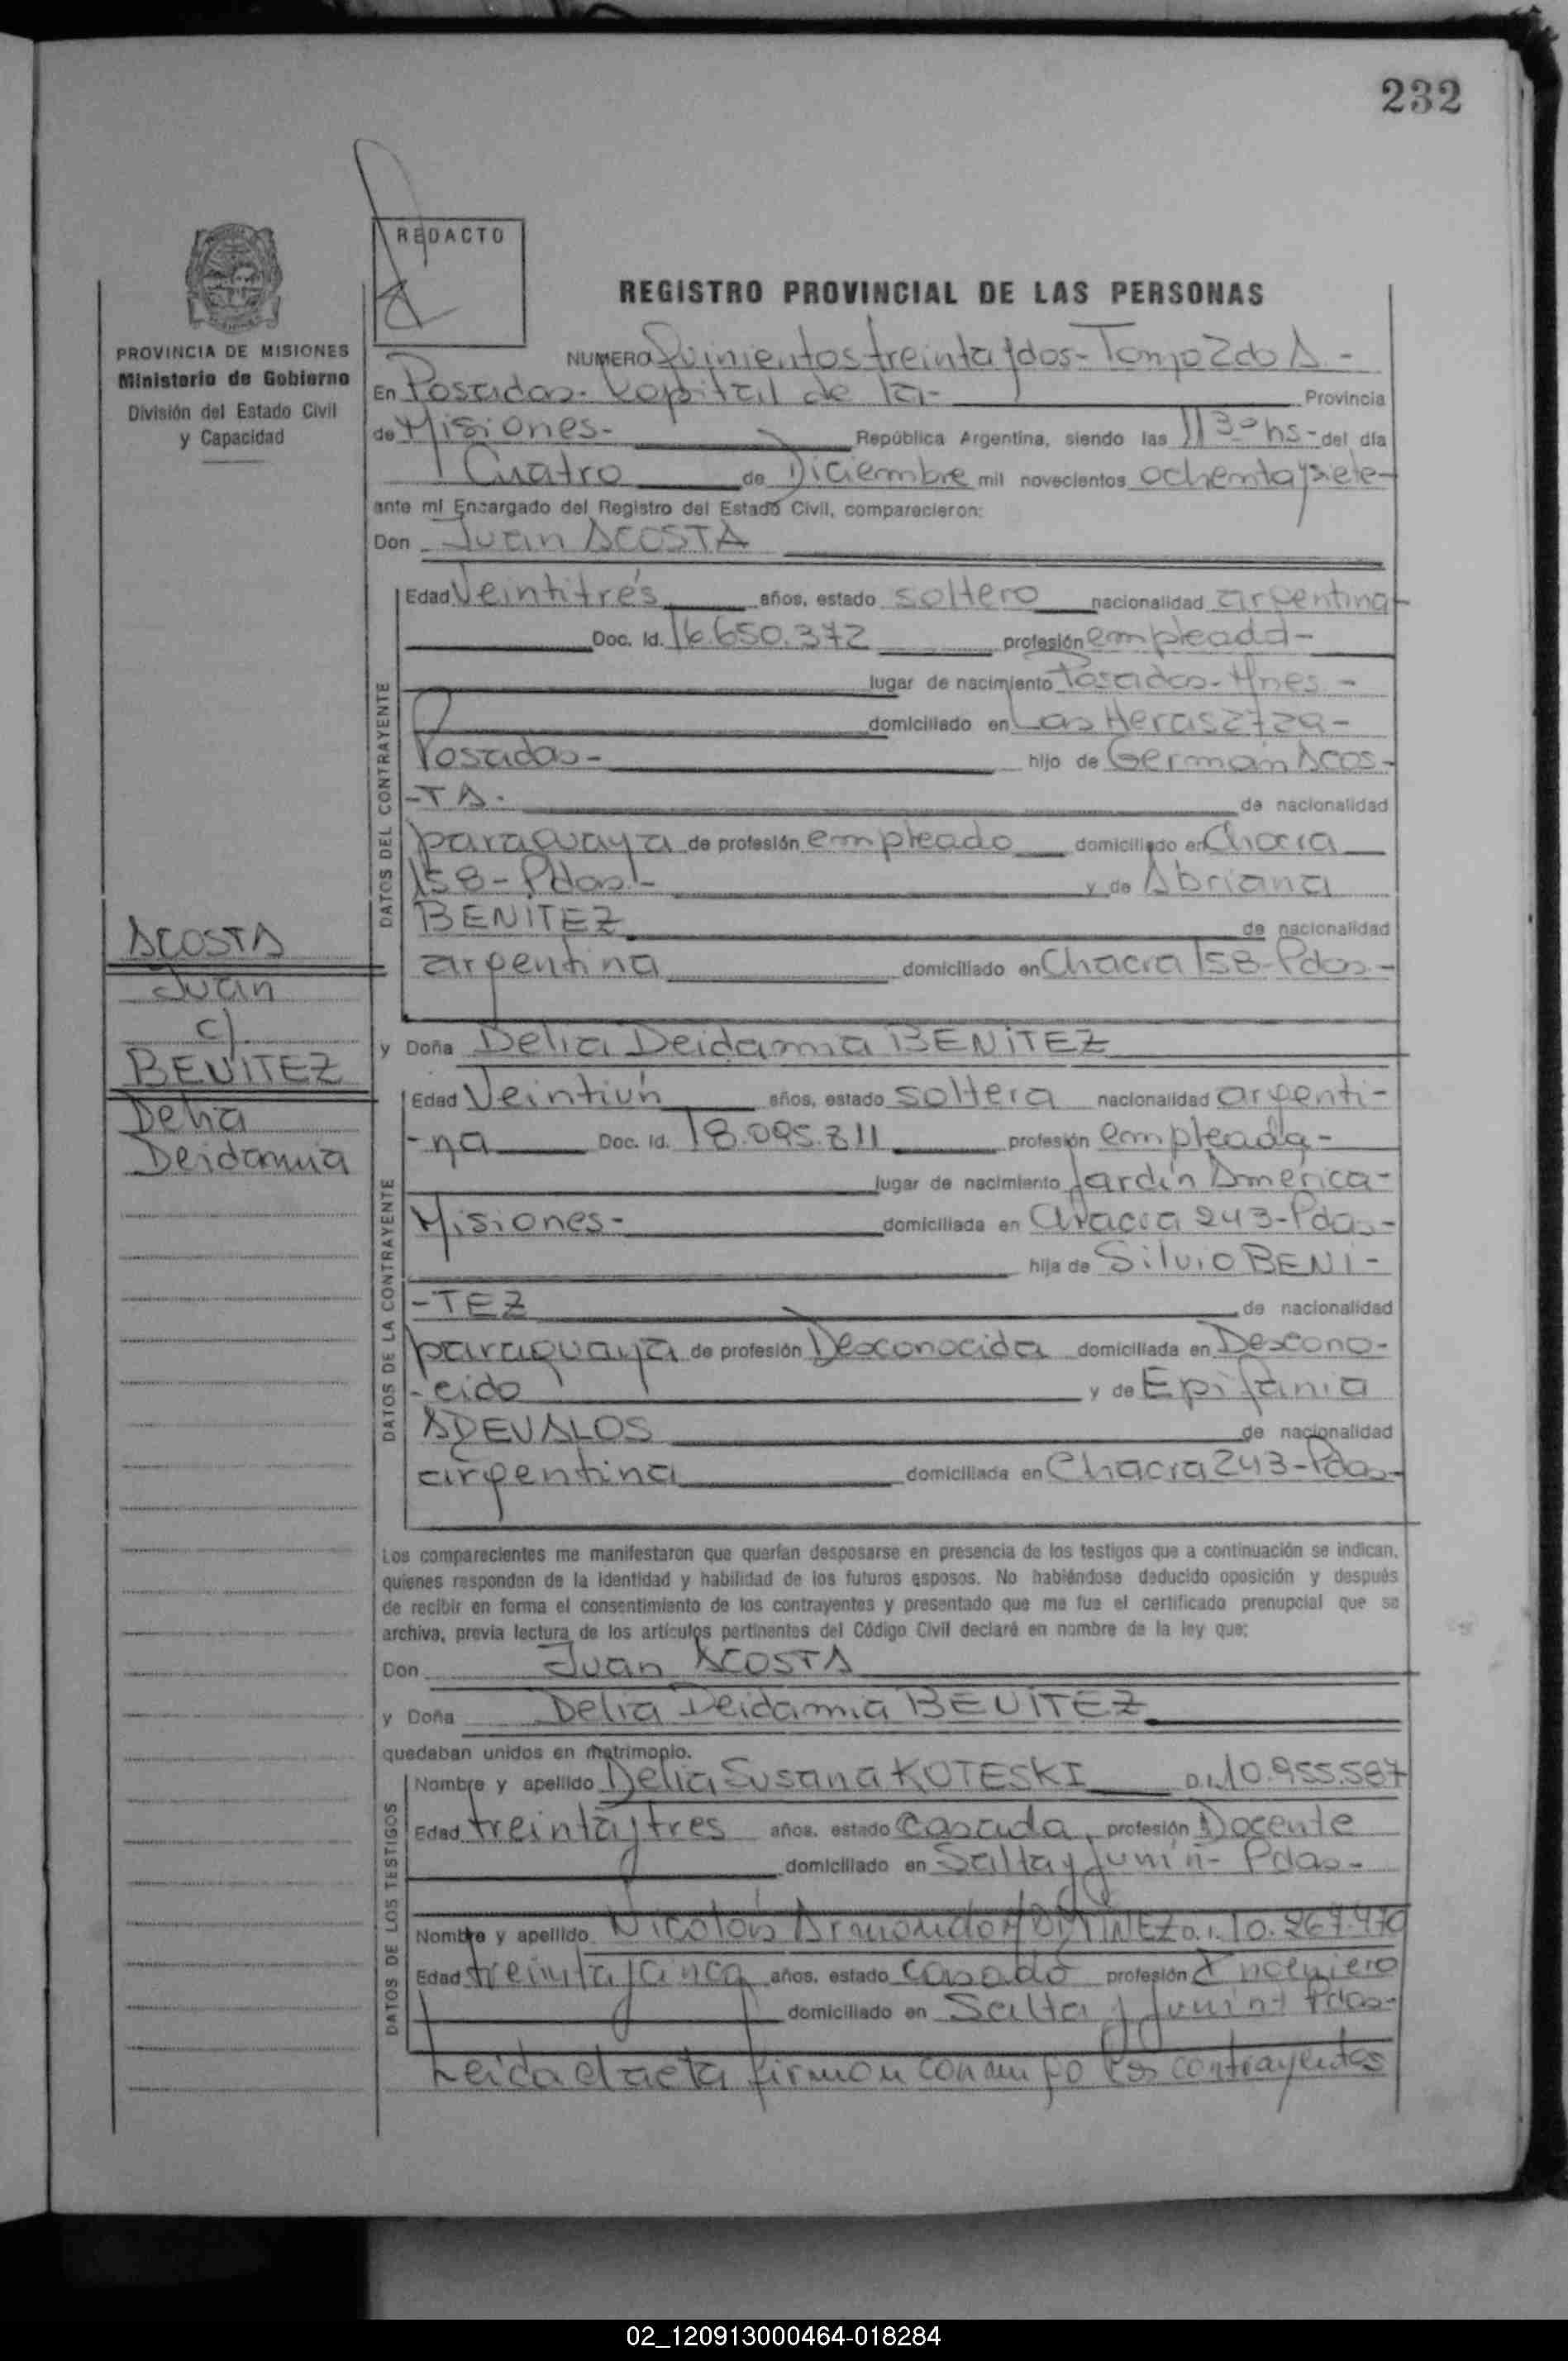 232
REDACTO
REGISTRO PROVINCIAL DE LAS PERSONAS
PROVINCIA DE MISIONES
Ministerio de Gobierno
División del Estado Civil
y Capacidad
NUMERO Quinientos treinta y dos - Tomo 2do A -
En Posadas - Capital de la - Provincia
de Misiones - República Argentina, siendo las 11 30 hs - del día
Cuatro de Diciembre mil novecientos ochenta y siete -
ante mi Encargado del Registro del Estado Civil, comparecieron:
Don Juan ACOSTA
DATOS DEL CONTRAYENTE
Edad Veintitrés años, estado soltero nacionalidad argentina
Doc. Id. 16.650.372 profesión empleado -
lugar de nacimiento Posadas - Mnes -
domiciliado en Las Heras 2729 -
Posadas - hijo de Germán ACOS-
-TA. de nacionalidad
paraguaya de profesión empleado domiciliado en Chacra
158 - Pdas - y de Abriana
BENITEZ de nacionalidad
argentina domiciliado en Chacra 158 - Pdas -
ACOSTA
Juan
c/
BENITEZ
Delia
Deidamia
y Doña Delia Deidamia BENITEZ
DATOS DE LA CONTRAYENTE
Edad Veintiún años, estado soltera nacionalidad argenti-
-na Doc. Id. 18.095.811 profesión empleada -
lugar de nacimiento Jardín América -
Misiones - domiciliada en Chacra 243 - Pdas -
hija de Silvio BENI-
-TEZ de nacionalidad
paraguaya de profesión Desconocida domiciliada en Descono-
-cido y de Epifania
AREVALOS de nacionalidad
argentina domiciliada en Chacra 243 - Pdas -
Los comparecientes me manifestaron que querían desposarse en presencia de los testigos que a continuación se indican,
quienes responden de la identidad y habilidad de los futuros esposos. No habiéndose deducido oposición y después
de recibir en forma el consentimiento de los contrayentes y presentado que me fue el certificado prenupcial que se
archiva, previa lectura de los artículos pertinentes del Código Civil declaré en nombre de la ley que:
Don Juan ACOSTA
y Doña Delia Deidamia BENITEZ
quedaban unidos en matrimonio.
DATOS DE LOS TESTIGOS
Nombre y apellido Delia Susana KOTESKI D.I. 10.955.587
Edad treinta y tres años, estado casada, profesión Docente
domiciliado en Salta y Junín - Pdas -
Nombre y apellido Nicolás Armando D.I. 10.267.470
Edad treinta y cinco años, estado casado profesión Ingeniero
domiciliado en Salta y Junín - Pdas -
Leida el acta firman conmigo los contrayentes
02_120913000464-018284